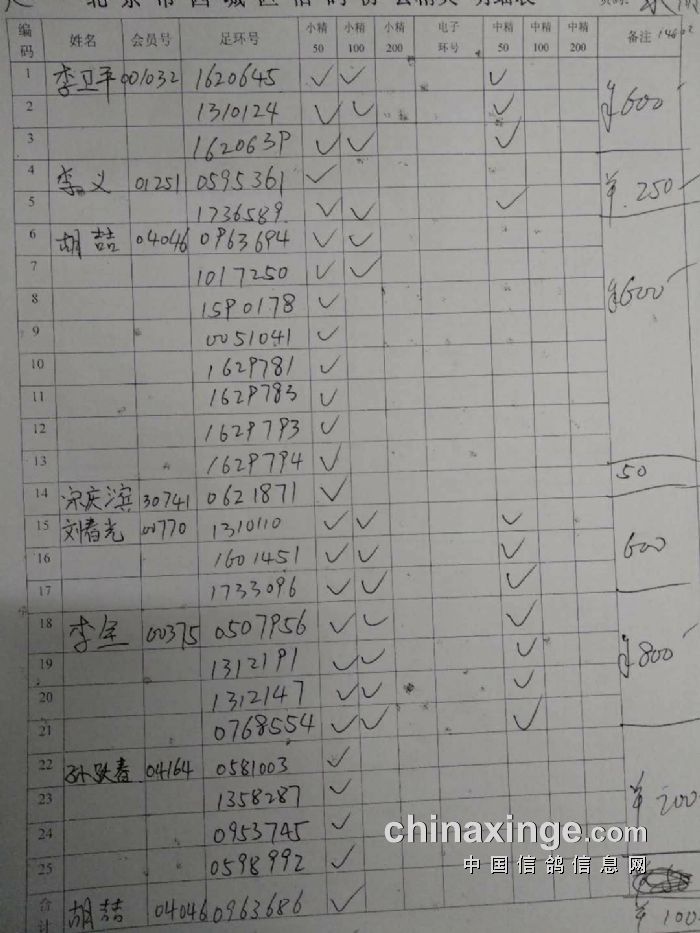 编码 姓名 会员号 足环号 小精50 小精100 小精200 电子环号 中精50 中精100 中精200 备注
1 李卫平 001032 1620645 ✓ ✓ ✓
2 1310124 ✓ ✓ ✓ ¥600
3 1620639 ✓ ✓ ✓
4 李义 01251 0595361 ✓ ¥250
5 1736589 ✓ ✓ ✓
6 胡喆 04046 0963694 ✓ ✓
7 1017250 ✓ ✓
8 1590178 ✓ ¥600
9 0051041 ✓
10 1629781 ✓
11 1629783 ✓
12 1629793 ✓
13 1629794 ✓ 50
14 宋庆滨 30741 0621871 ✓
15 刘春光 00770 1310110 ✓ ✓ ✓
16 1601451 ✓ ✓ ✓ 600
17 1733096 ✓ ✓ ✓
18 李全 00375 0507956 ✓ ✓ ✓
19 1312191 ✓ ✓ ✓ ¥800
20 1312147 ✓ ✓ ✓
21 0768554 ✓ ✓ ✓
22 孙跃春 04164 0581003 ✓
23 1358287 ✓ ¥200
24 0953745 ✓
25 0598992 ✓
合计 胡喆 04046 0963686 ✓ ¥100
chinaxinge.com
中国信鸽信息网